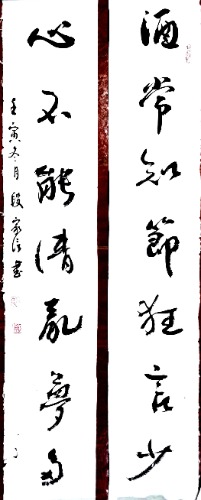 酒常知節狂言少
心不能清亂夢多
壬寅冬月段家書